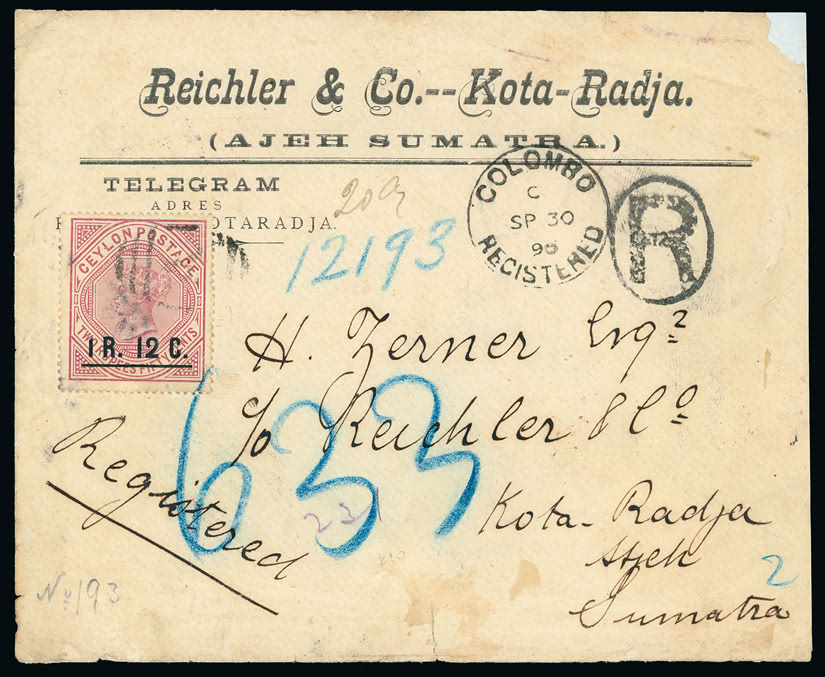 Reichler & Co.--Kota-Radja.
(AJEH SUMATRA.)
TELEGRAM
ADRES
OTARADJA.
12193
COLOMBO
C
SP 30
REGISTERED
R
CEYLON POSTAGE
TWO RUPEES FIFTY CENTS
1 R. 12 C.
H. Zerner Esqr
c/o Reichler & Co
633
Registered
231
Kota-Radja
Atjeh
Sumatra
2
No 193